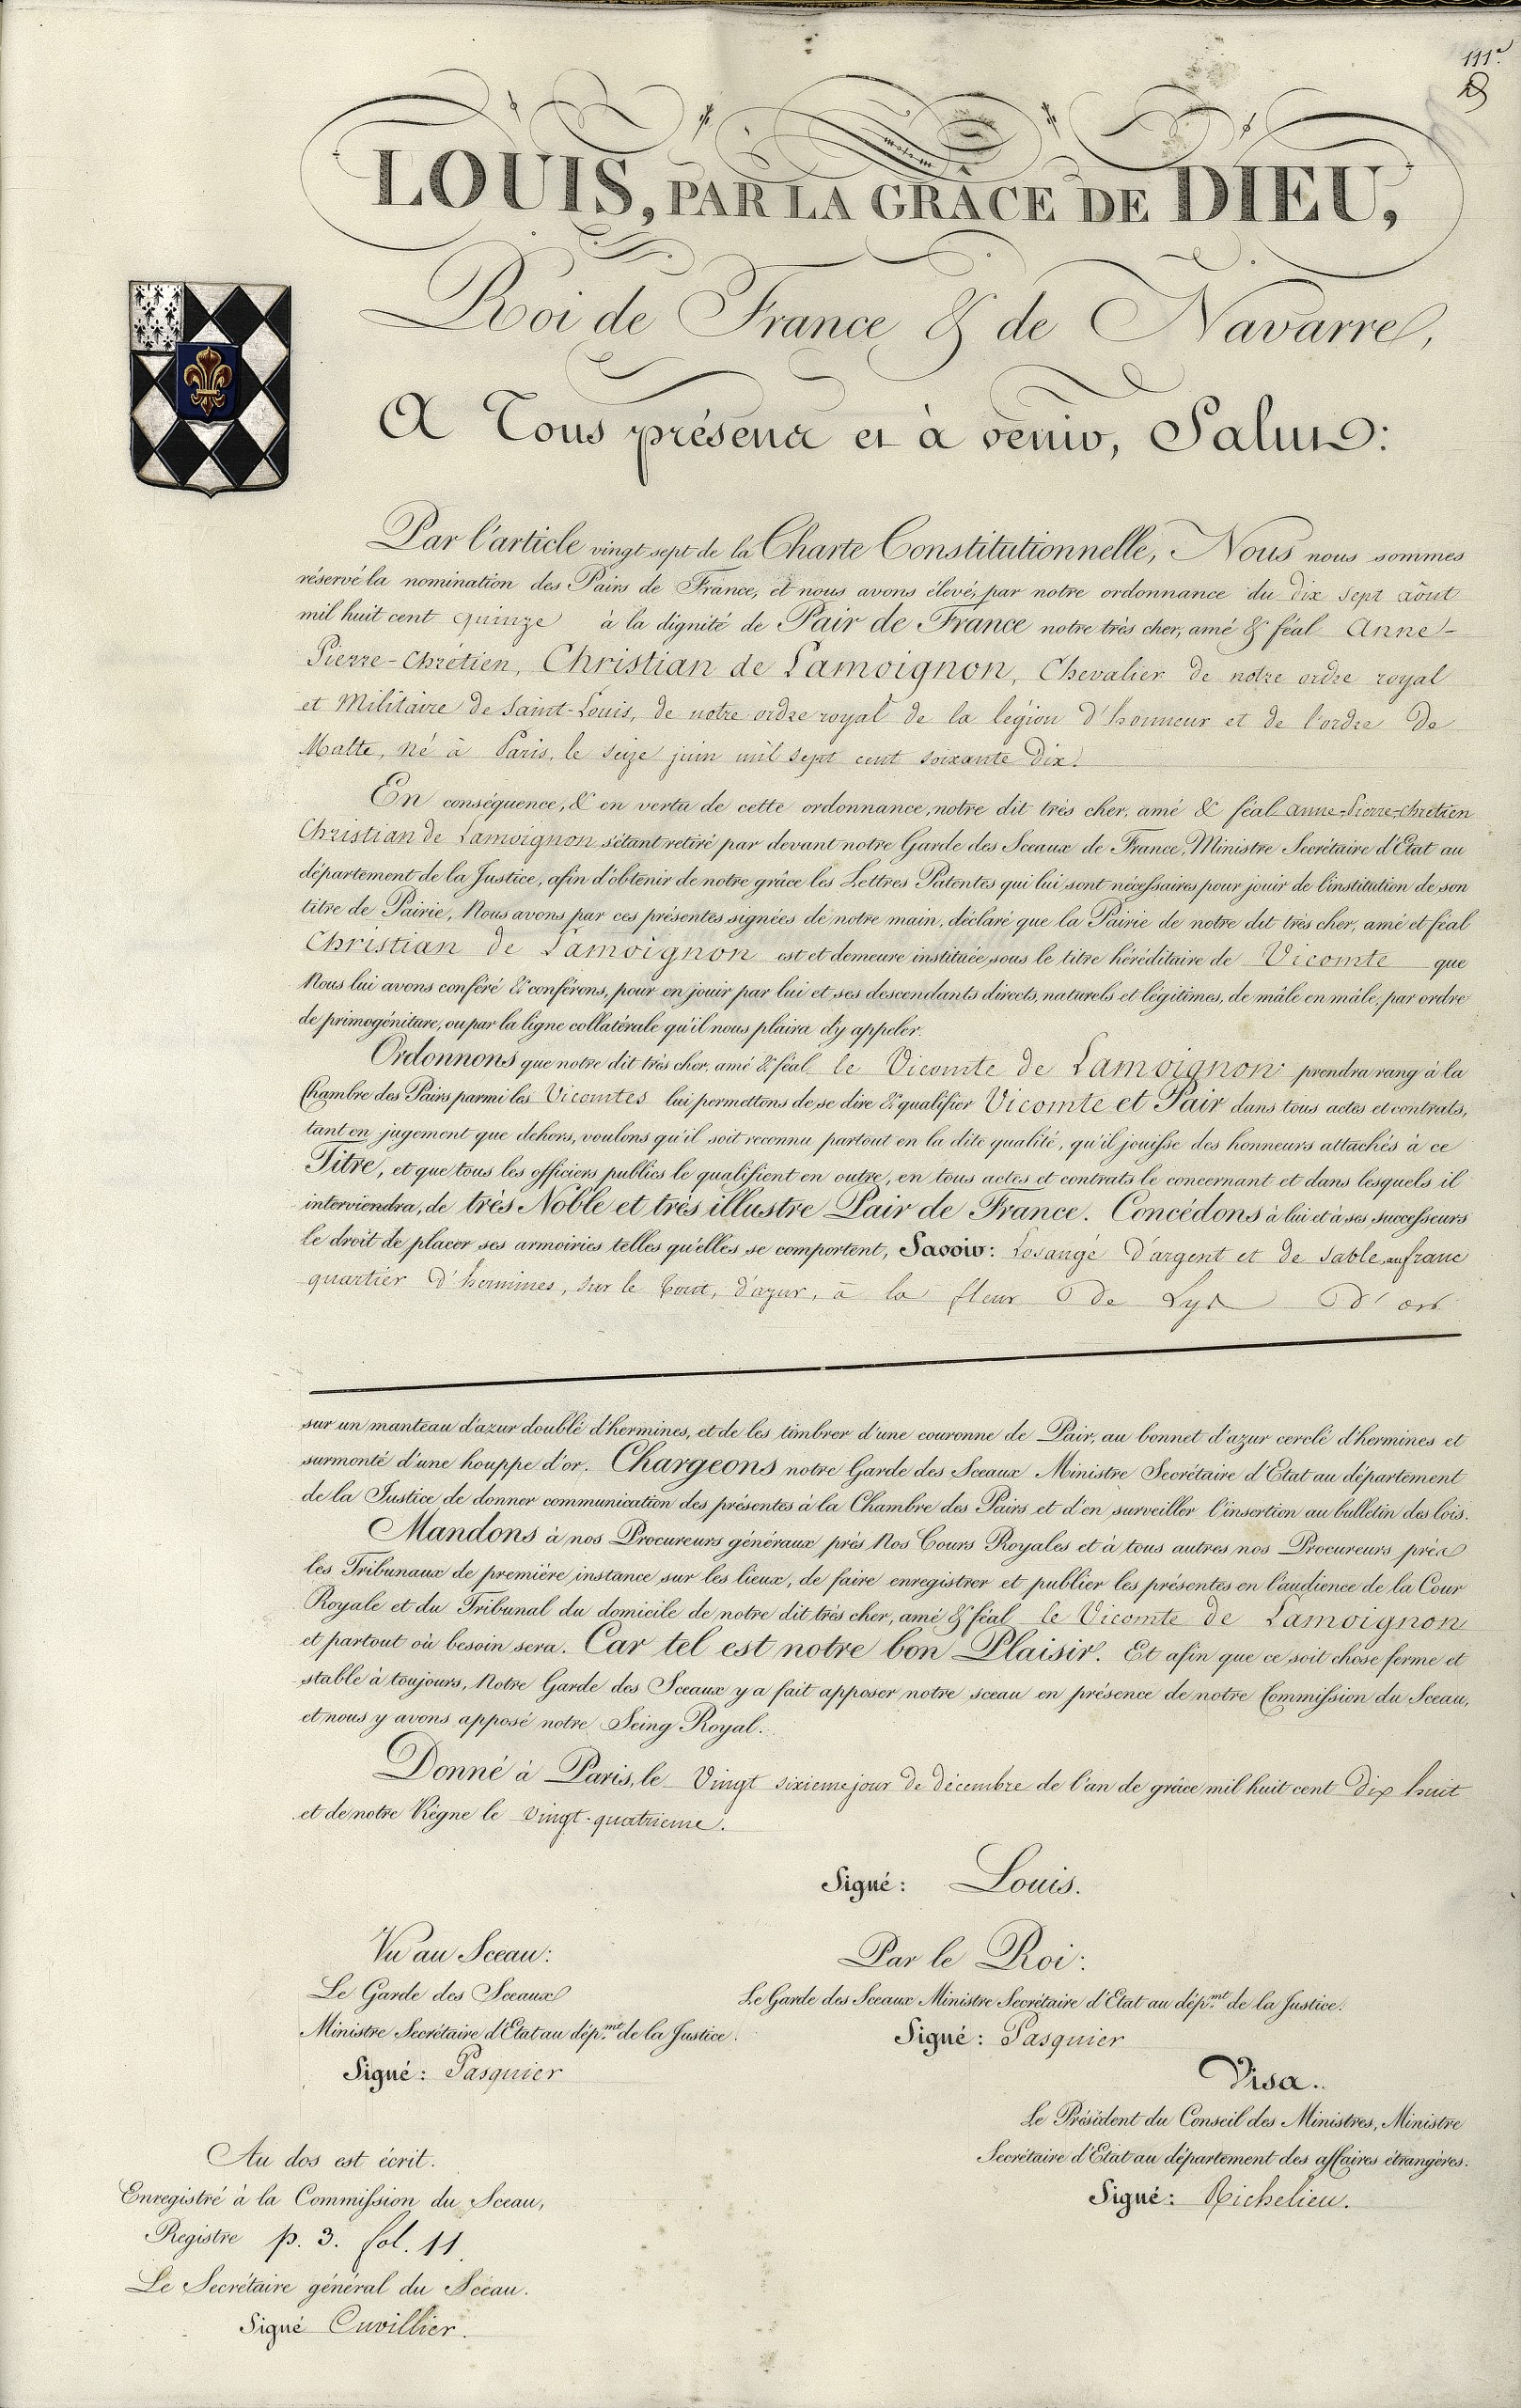 111e
LOUIS, PAR LA GRÂCE DE DIEU,
Roi de France & de Navarre,
A Tous présens et à venir, Salut:
Par l'article vingt sept de la Charte Constitutionnelle, Nous nous sommes
réservé la nomination des Pairs de France, et nous avons élevé, par notre ordonnance du dix sept août
mil huit cent quinze à la dignité de Pair de France notre très cher, amé & féal Anne-
Pierre-Chrétien, Christian de Lamoignon, Chevalier de notre ordre royal
et Militaire de Saint-Louis, de notre ordre royal de la légion d'honneur et de l'ordre de
Malte, né à Paris, le seize juin mil sept cent soixante dix.
En conséquence, & en vertu de cette ordonnance, notre dit très cher, amé & féal Anne-Pierre-Chrétien
Christian de Lamoignon s'étant retiré par devant notre Garde des Sceaux de France, Ministre Secrétaire d'Etat au
département de la Justice, afin d'obtenir de notre grâce les Lettres Patentes qui lui sont nécessaires pour jouir de l'institution de son
titre de Pairie, Nous avons par ces présentes signées de notre main, déclaré que la Pairie de notre dit très cher, amé et féal
Christian de Lamoignon est et demeure instituée sous le titre héréditaire de Vicomte que
Nous lui avons conféré & conférons, pour en jouir par lui et ses descendants directs, naturels et légitimes, de mâle en mâle, par ordre
de primogéniture, ou par la ligne collatérale qu'il nous plaira d'y appeler.
Ordonnons que notre dit très cher, amé & féal le Vicomte de Lamoignon prendra rang à la
Chambre des Pairs parmi les Vicomtes lui permettons de se dire & qualifier Vicomte et Pair dans tous actes et contrats,
tant en jugement que dehors, voulons qu'il soit reconnu partout en la dite qualité, qu'il jouisse des honneurs attachés à ce
Titre, et que tous les officiers publics le qualifient en outre, en tous actes et contrats le concernant et dans lesquels il
interviendra, de très Noble et très illustre Pair de France. Concédons à lui et à ses successeurs
le droit de placer ses armoiries telles qu'elles se comportent, Savoir: Losangé d'argent et de sable, au franc
quartier d'hermines, sur le tout, d'azur, à la fleur de Lys d'or
sur un manteau d'azur doublé d'hermines, et de les timbrer d'une couronne de Pair, au bonnet d'azur cerclé d'hermines et
surmonté d'une houppe d'or. Chargeons notre Garde des Sceaux Ministre Secrétaire d'Etat au département
de la Justice de donner communication des présentes à la Chambre des Pairs et d'en surveiller l'insertion au bulletin des lois.
Mandons à nos Procureurs généraux près Nos Cours Royales et à tous autres nos Procureurs près
les Tribunaux de première instance sur les lieux, de faire enregistrer et publier les présentes en l'audience de la Cour
Royale et du Tribunal du domicile de notre dit très cher, amé & féal le Vicomte de Lamoignon
et partout où besoin sera. Car tel est notre bon Plaisir. Et afin que ce soit chose ferme et
stable à toujours, Notre Garde des Sceaux y a fait apposer notre sceau en présence de notre Commission du Sceau,
et nous y avons apposé notre Seing Royal.
Donné à Paris, le Vingt sixieme jour de décembre de l'an de grâce mil huit cent dix huit
et de notre Règne le vingt-quatrieme.
Signé: Louis.
Vu au Sceau:
Le Garde des Sceaux
Ministre Secrétaire d'Etat au dép.mt de la Justice.
Signé: Pasquier
Par le Roi:
Le Garde des Sceaux Ministre Secrétaire d'Etat au dép.mt de la Justice.
Signé: Pasquier
Visa.
Le Président du Conseil des Ministres, Ministre
Secrétaire d'Etat au département des affaires étrangères.
Signé: Richelieu.
Au dos est écrit.
Enregistré à la Commission du Sceau,
Registre p. 3. fol. 11.
Le Secrétaire général du Sceau.
Signé Cuvillier.